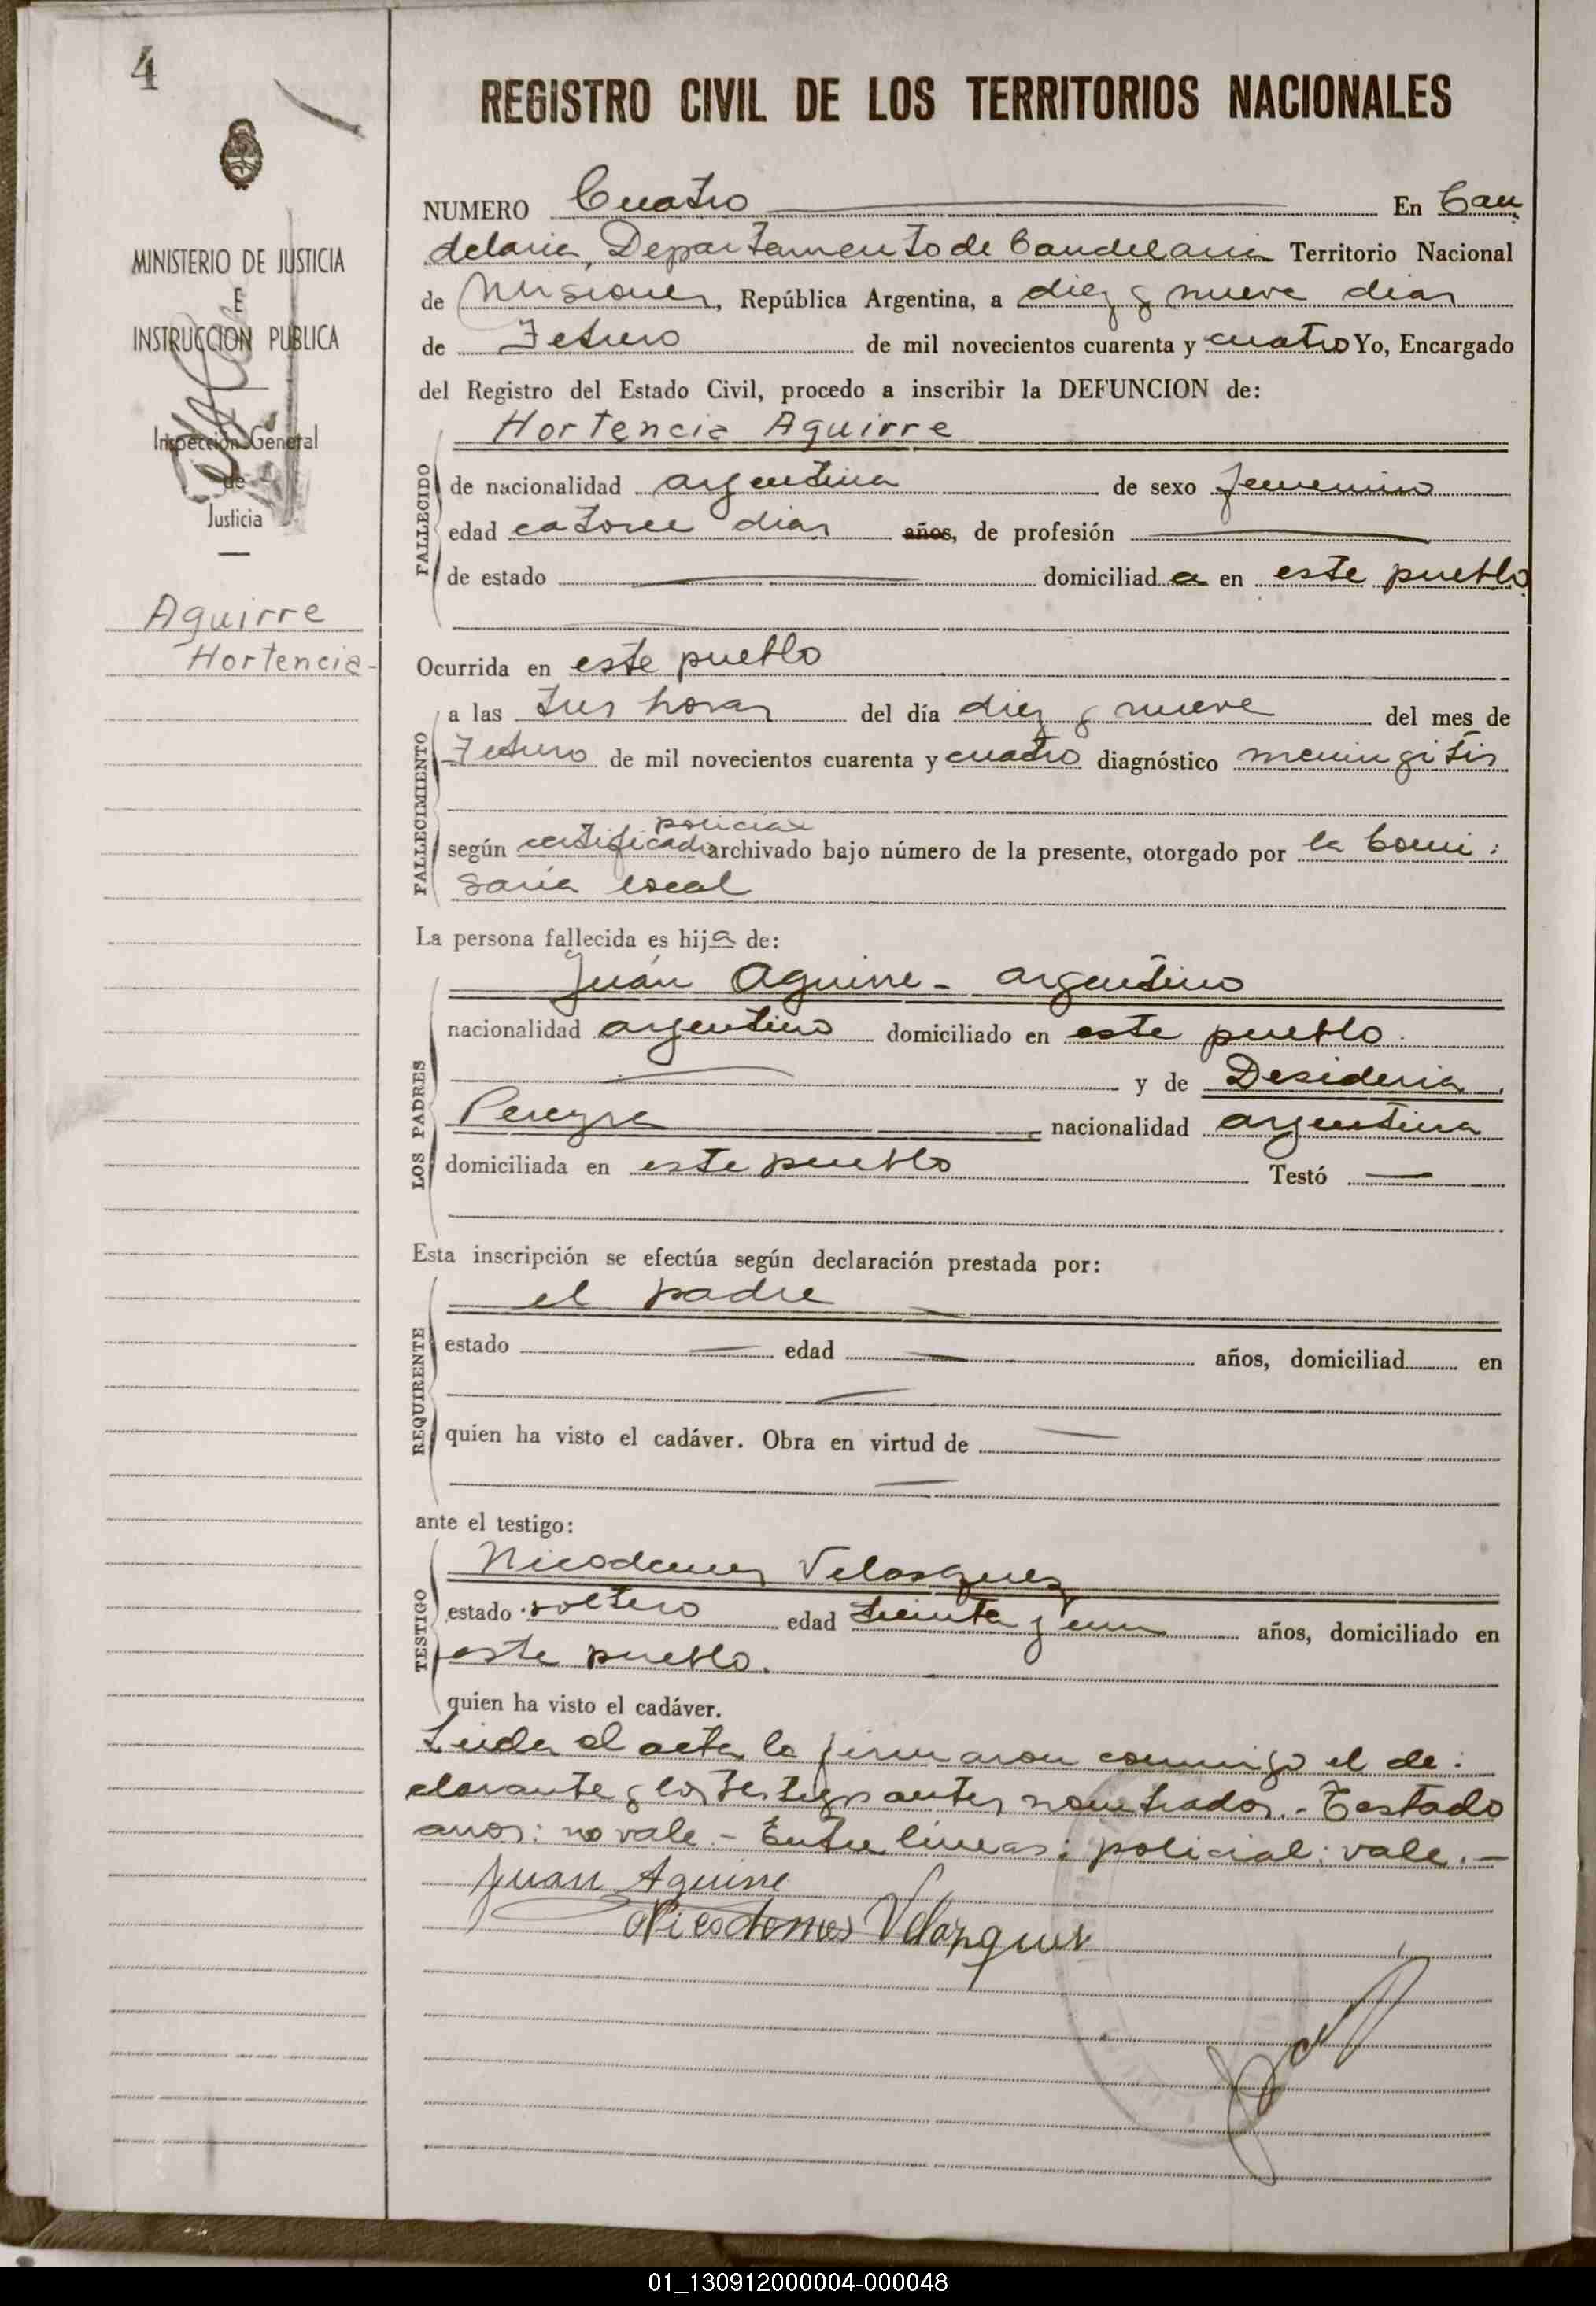 4
MINISTERIO DE JUSTICIA
E
INSTRUCCION PUBLICA
Inspección General
de
Justicia
Aguirre
Hortencia-
REGISTRO CIVIL DE LOS TERRITORIOS NACIONALES
NUMERO Cuatro En Can
delaria, Departamento de Candelaria Territorio Nacional
de Misiones, República Argentina, a diez y nueve dias
de Febrero de mil novecientos cuarenta y cuatro Yo, Encargado
del Registro del Estado Civil, procedo a inscribir la DEFUNCION de:
Hortencia Aguirre
FALLECIDO
de nacionalidad argentina de sexo femenino
edad catorce dias años, de profesión
de estado domiciliad a en este pueblo
Ocurrida en este pueblo
FALLECIMIENTO
a las tres horas del día diez y nueve del mes de
Febrero de mil novecientos cuarenta y cuatro diagnóstico meningitis
policial
según certificado archivado bajo número de la presente, otorgado por la Comi:
saria local
La persona fallecida es hija de:
LOS PADRES
Juan Aguirre - argentino
nacionalidad argentino domiciliado en este pueblo.
y de Desideria
Pereyra nacionalidad argentina
domiciliada en este pueblo Testó
Esta inscripción se efectúa según declaración prestada por:
REQUIRENTE
el padre
estado edad años, domiciliad en
quien ha visto el cadáver. Obra en virtud de
ante el testigo:
TESTIGO
Nicodemes Velasquez
estado soltero edad treinta y un años, domiciliado en
este pueblo.
quien ha visto el cadáver.
Leida el acta la firmaron conmigo el de:
clarante y los testigos antes nombrados.- Testado
años: no vale.- Entre lineas: policial: vale.-
Juan Aguirre
Nicodemes Velazquez
01_130912000004-000048